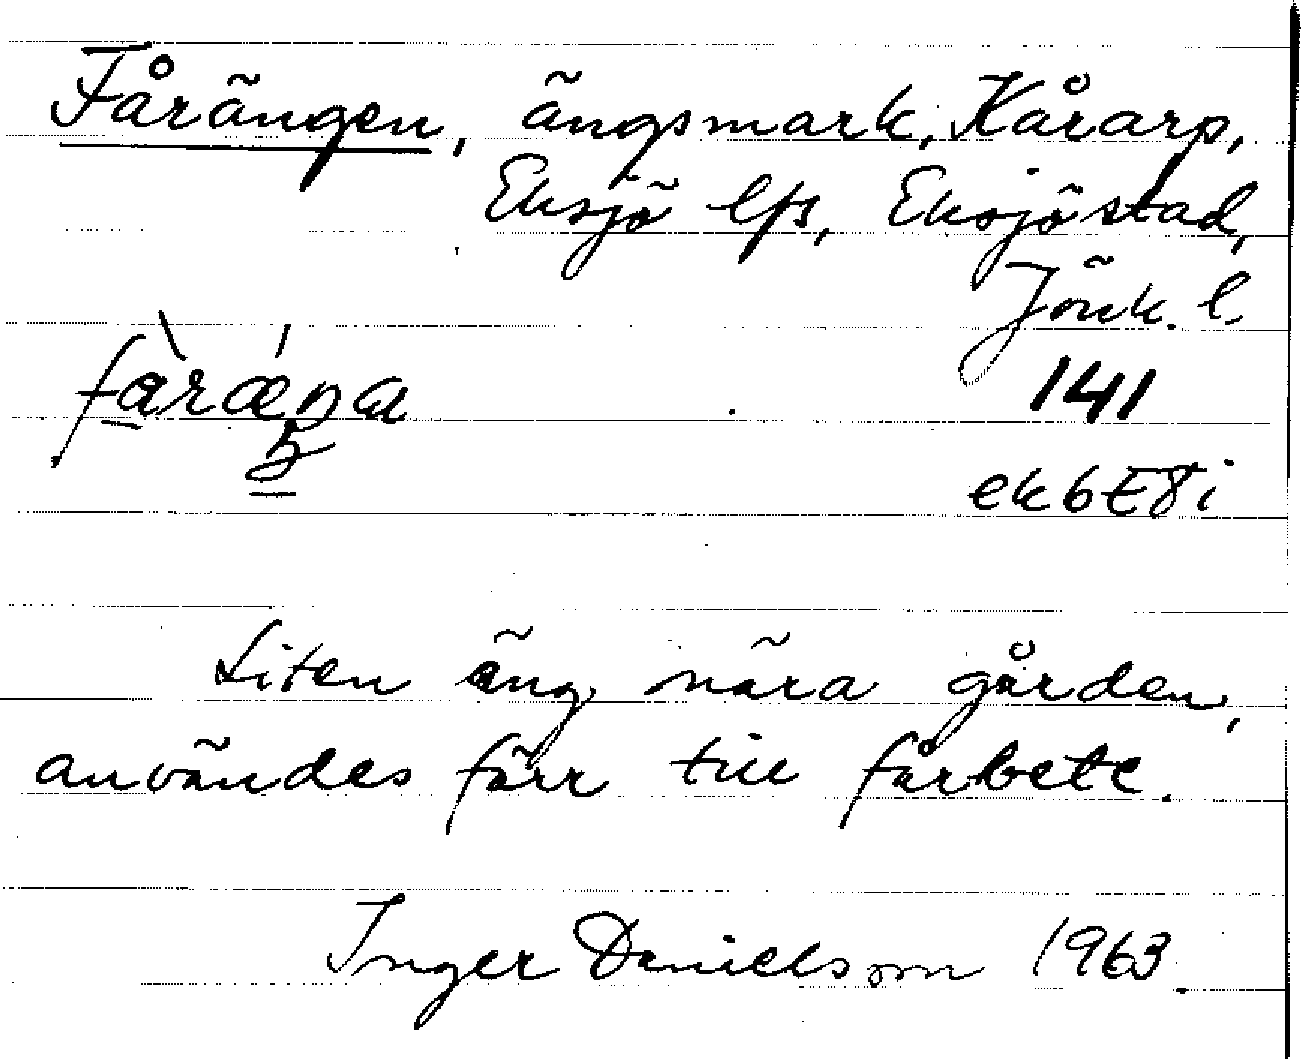 Fårängen, ängsmark, Kårarp,
Eksjö lfs, Eksjö stad,
Jönk. l.
fàràŋa
141
ek 6E8i
Liten äng nära gården,
användes förr till fårbete.
Inger Danielsson 1963.